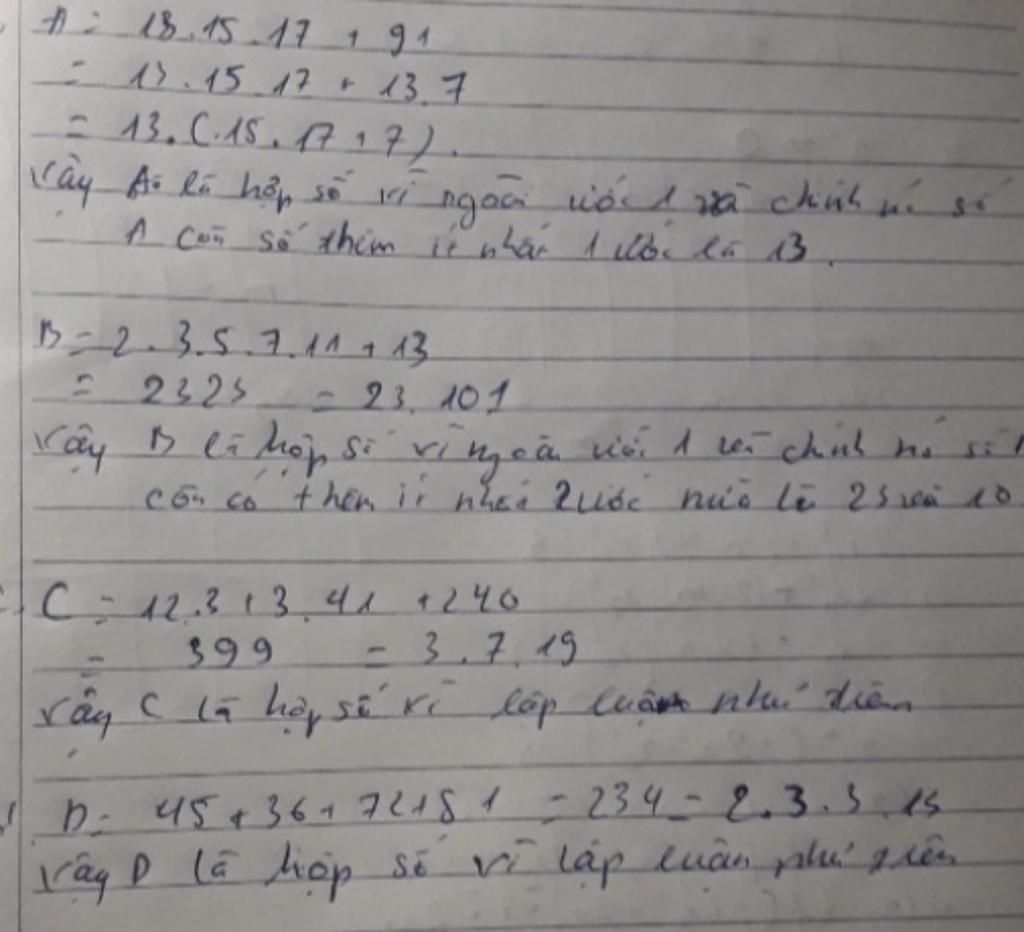 A = 13.15.17 + 91
= 13.15.17 + 13.7
= 13.(15.17+7).
Vậy A là hợp số vì ngoài ước 1 và chính nó số
A còn số thêm ít nhất 1 ước là 13.
B = 2.3.5.7.11 + 13
= 2323 = 23.101
Vậy B là hợp số vì ngoài ước 1 và chính nó số B
còn có thêm ít nhất 2 ước nữa là 23 và 10
C = 12.3+3.41 +240
= 399 = 3.7.19
Vậy C là hợp số vì lập luận như trên
D = 45+36+72+81 = 234 = 2.3.3.13
Vậy D là hợp số vì lập luận như trên